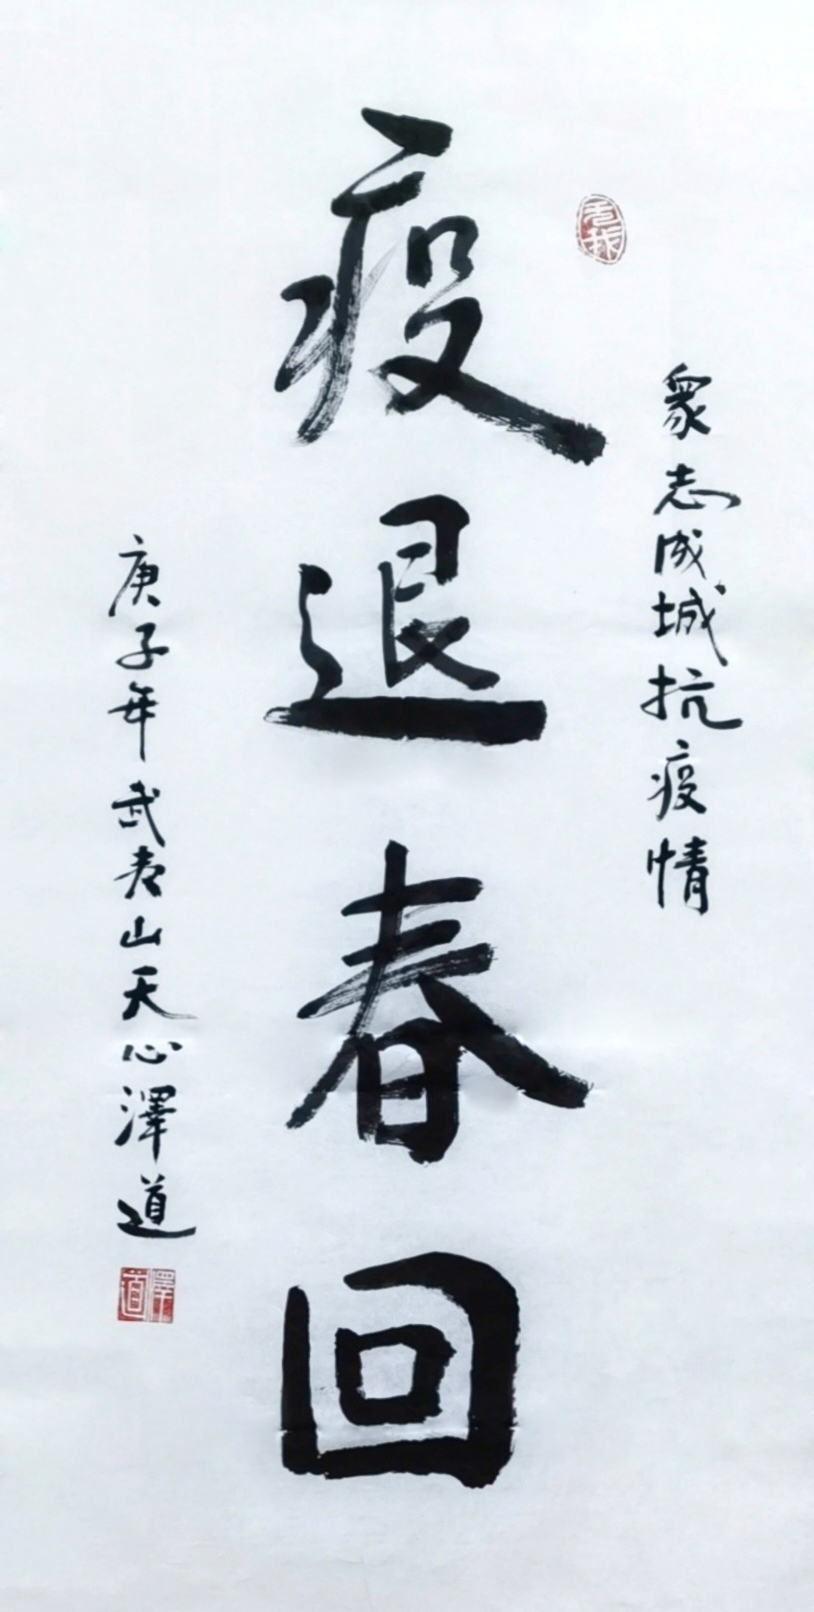 無我
眾志成城抗疫情
疫退春回
庚子年武夷山天心澤道
澤道